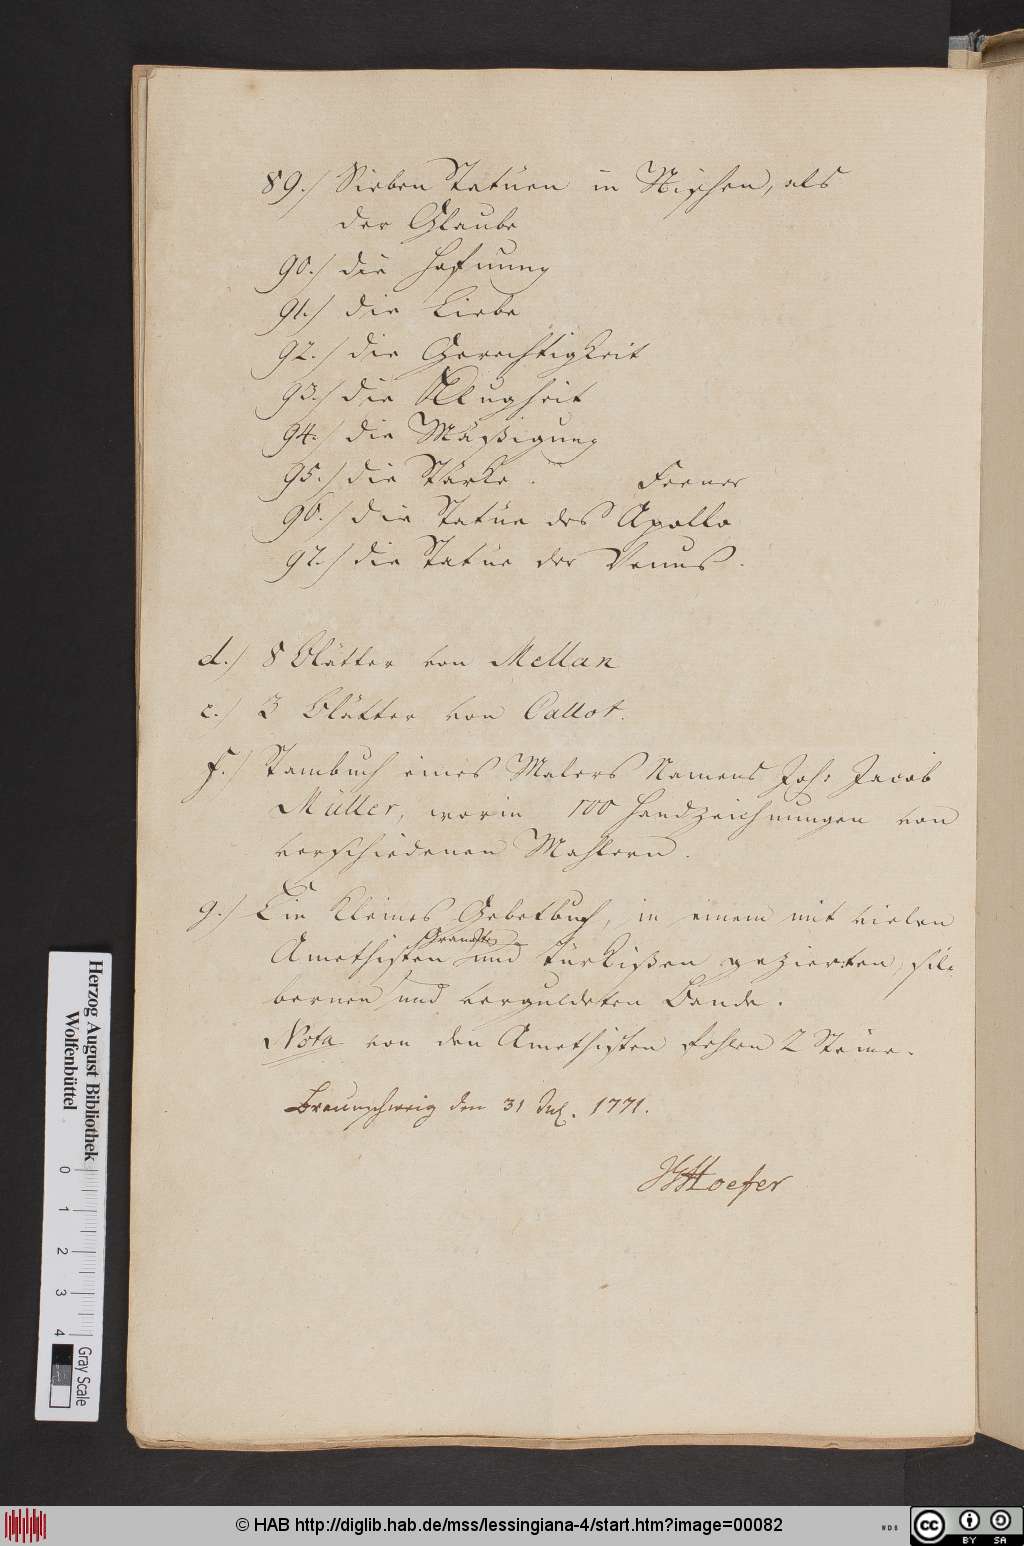 89./ Sieben Statuen in Nischen, als
der Glaube
90./ die Hofnung
91./ die Liebe
92./ die Gerechtigkeit
93./ die Klugheit
94./ die Mäßigung
95./ die Stärke. Ferner
96./ die Statüe des Apollo
97./ die Statüe der Venus.
d./ 8 Blätter von Mellan
e./ 3 Blätter von Callot.
f./ Stambuch eines Malers Namens Joh: Jacob
Müller, worin 100 Handzeichnungen von
verschiedenen Mahlern.
g./ Ein kleines Gebetbuch, in einem mit vielen
Amethisten und türkißen gezierten, sil=
bernen und verguldeten Bande.
Nota von den Amethisten fehlen 2 Steine.
Braunschweig den 31 Jul. 1771.
Hoefer
Herzog August Bibliothek
Wolfenbüttel
0 1 2 3 4
Gray Scale
© HAB http://diglib.hab.de/mss/lessingiana-4/start.htm?image=00082
WDB
cc BY SA